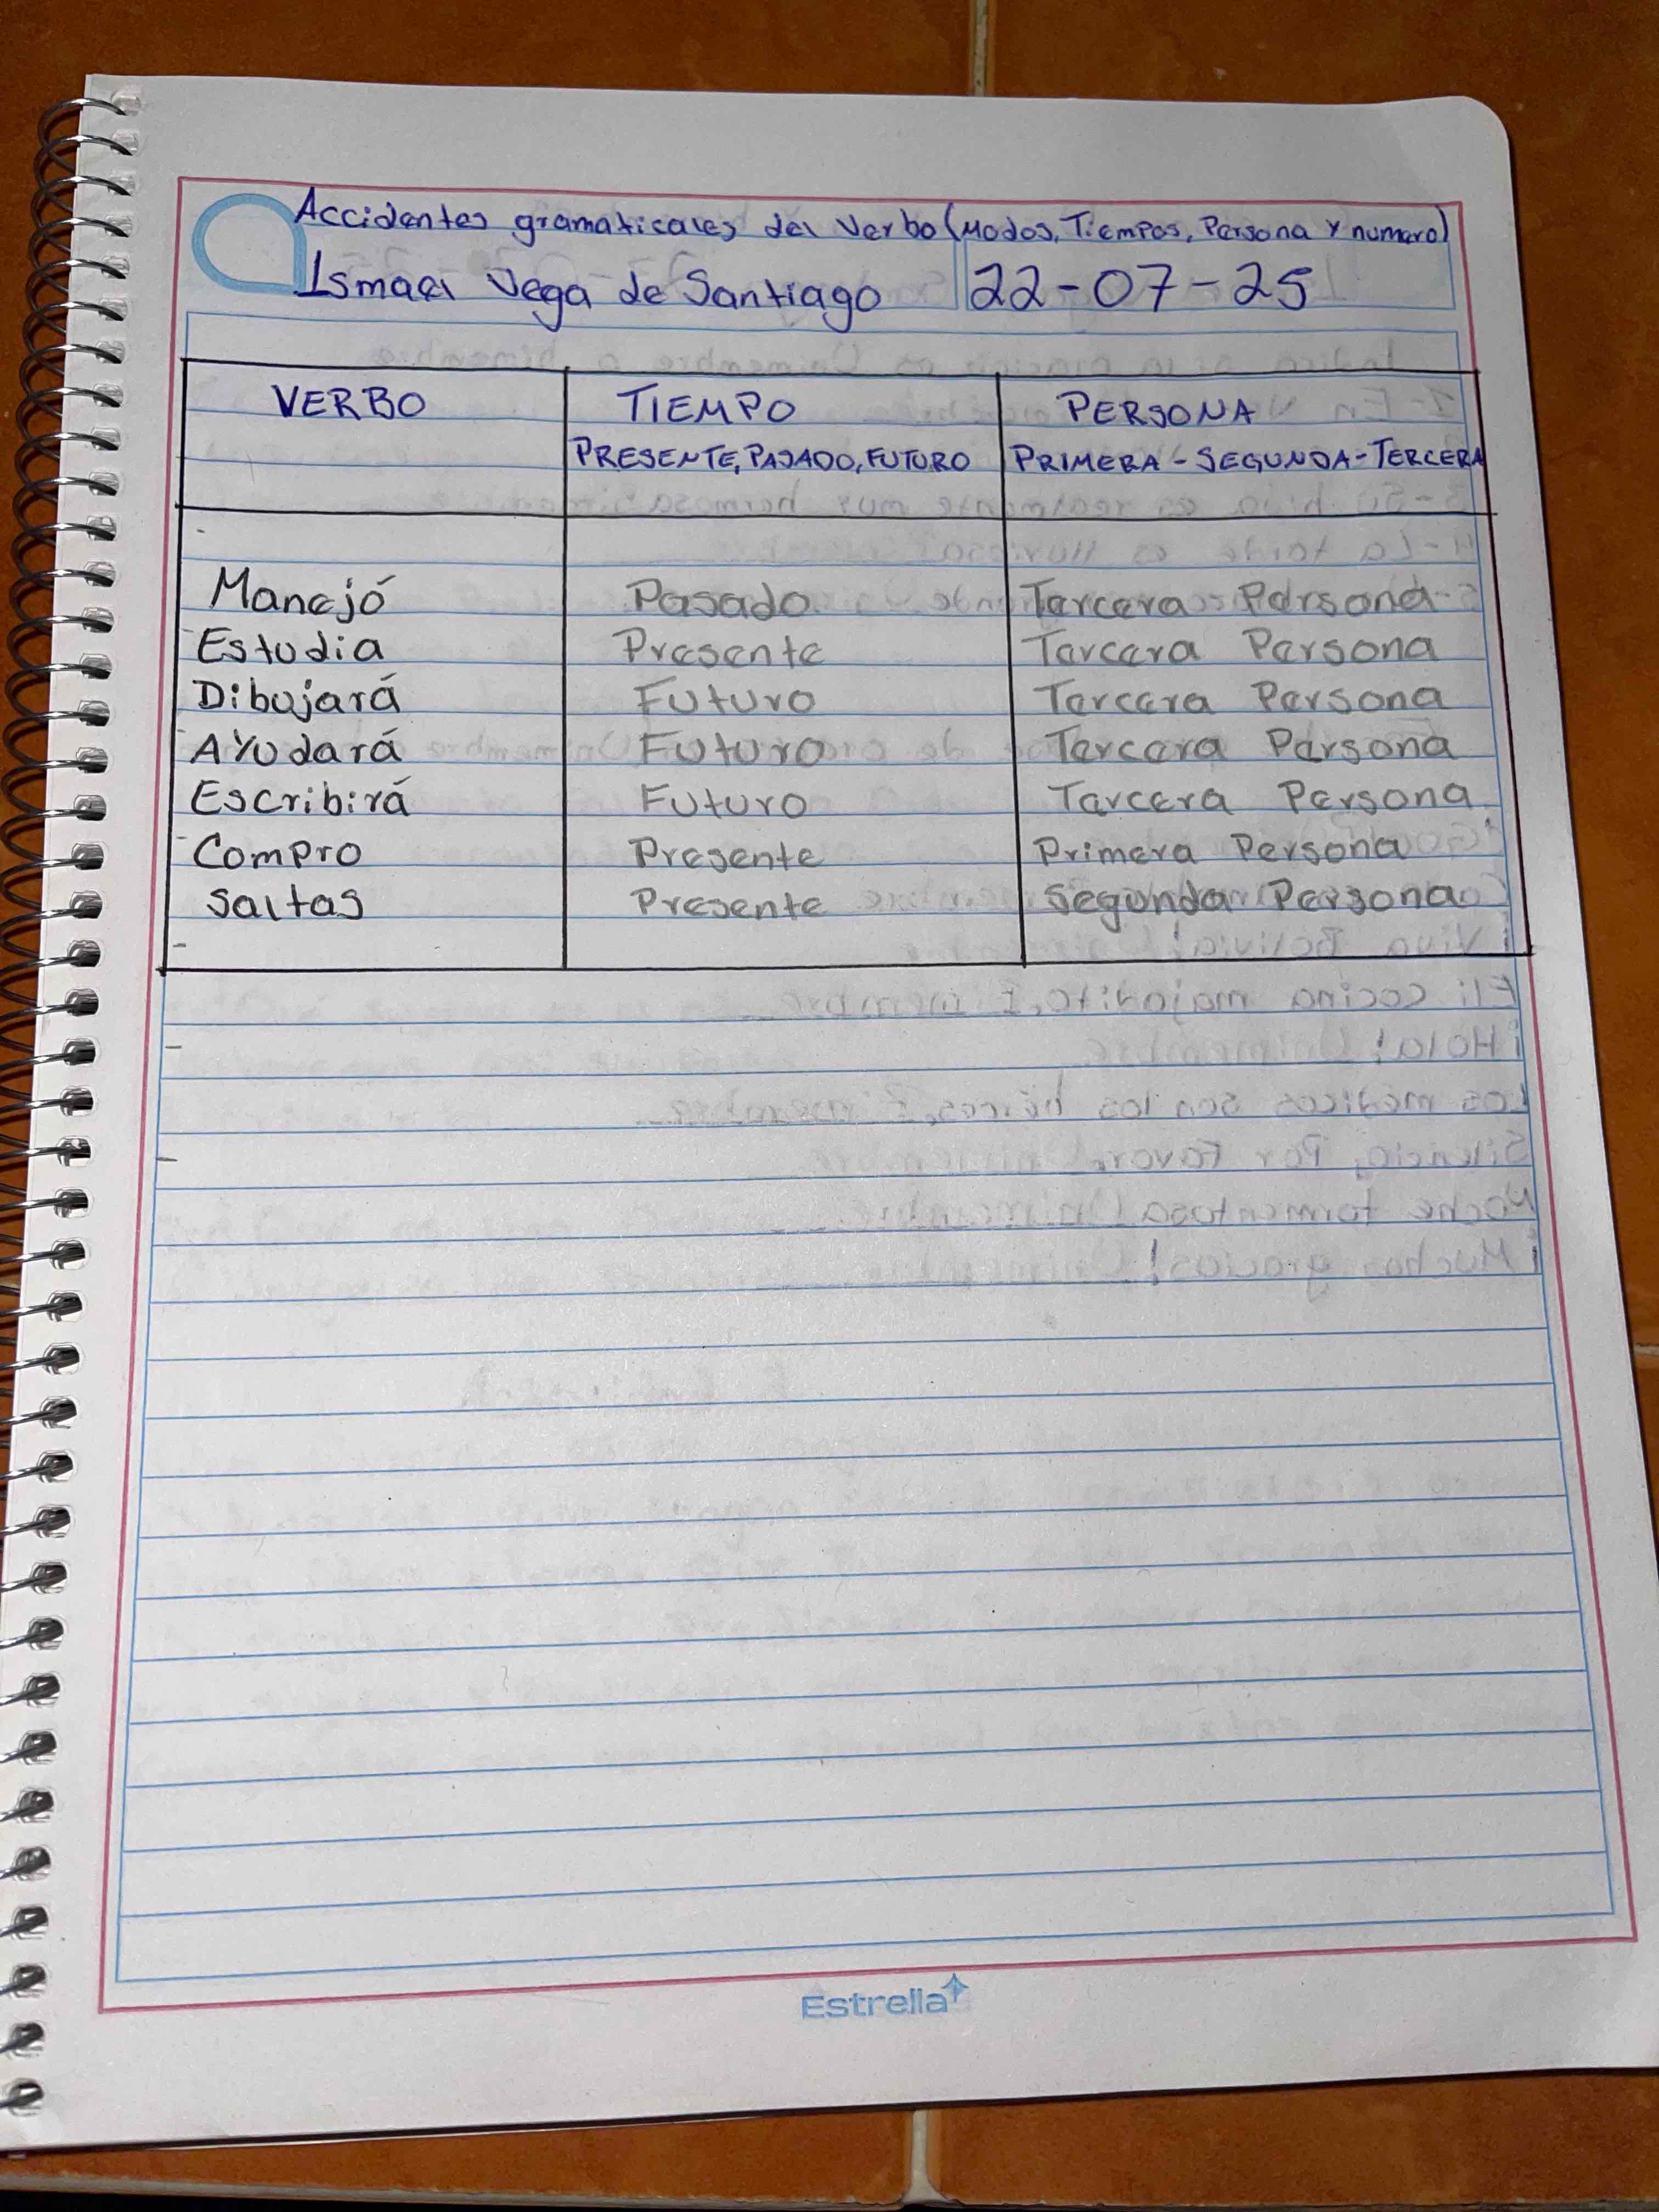 Accidentes gramaticales del Verbo (Modos, Tiempos, Persona y numero)
Ismael Vega de Santiago 22-07-25
VERBO TIEMPO PERSONA
PRESENTE, PASADO, FUTURO PRIMERA - SEGUNDA - TERCERA
Manejó Pasado Tercera Persona
Estudia Presente Tercera Persona
Dibujará Futuro Tercera Persona
Ayudará Futuro Tercera Persona
Escribirá Futuro Tercera Persona
Compro Presente Primera Persona
Saltas Presente Segunda Persona
Estrella